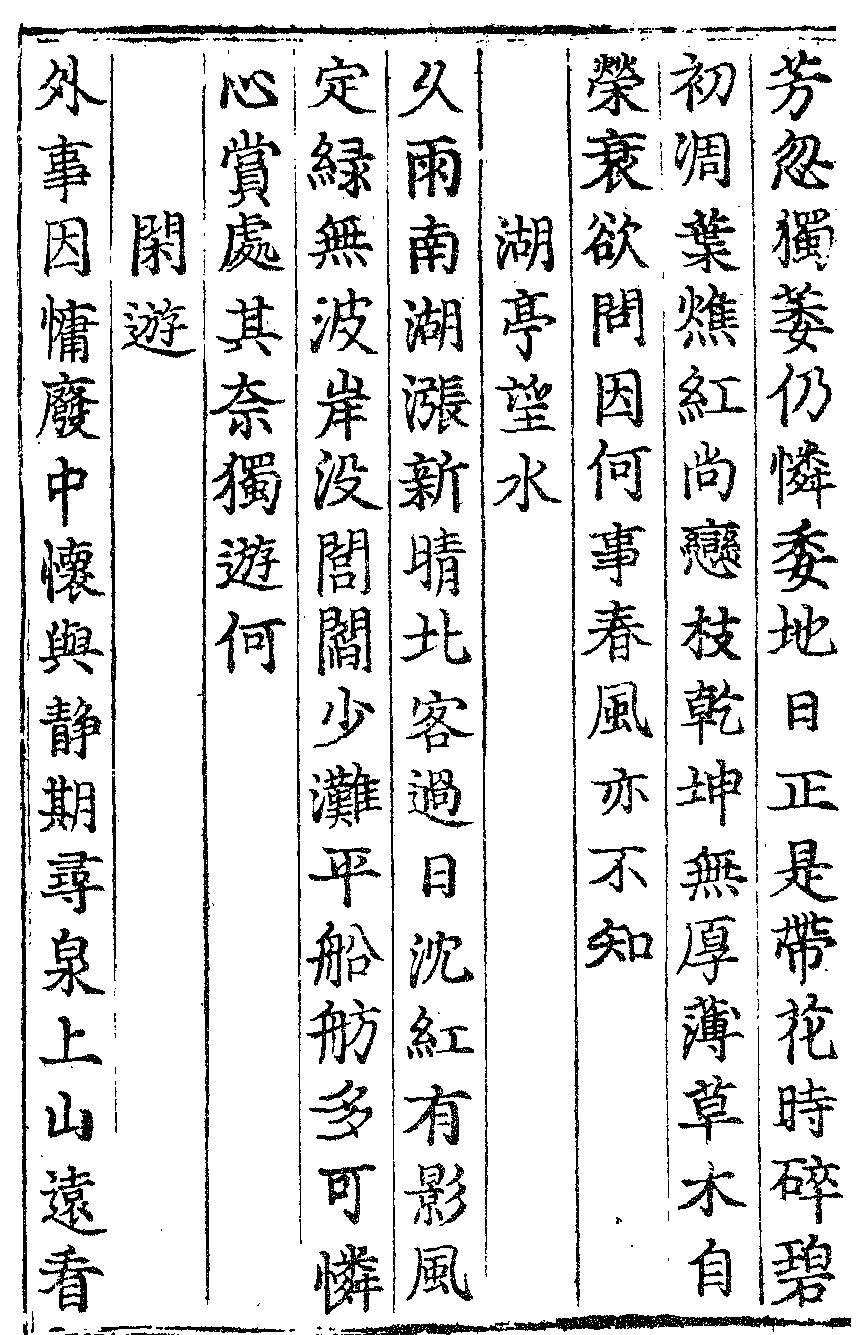 芳忽獨萎仍憐委地日正是帶花時碎碧
初凋葉燋紅尚戀枝乾坤無厚薄草木自
榮衰欲問因何事春風亦不知
湖亭望水
久雨南湖漲新晴北客過日沈紅有影風
定緑無波岸没閭閻少灘平船舫多可憐
心賞處其奈獨遊何
閑遊
外事因慵廢中懷與静期尋泉上山遠看